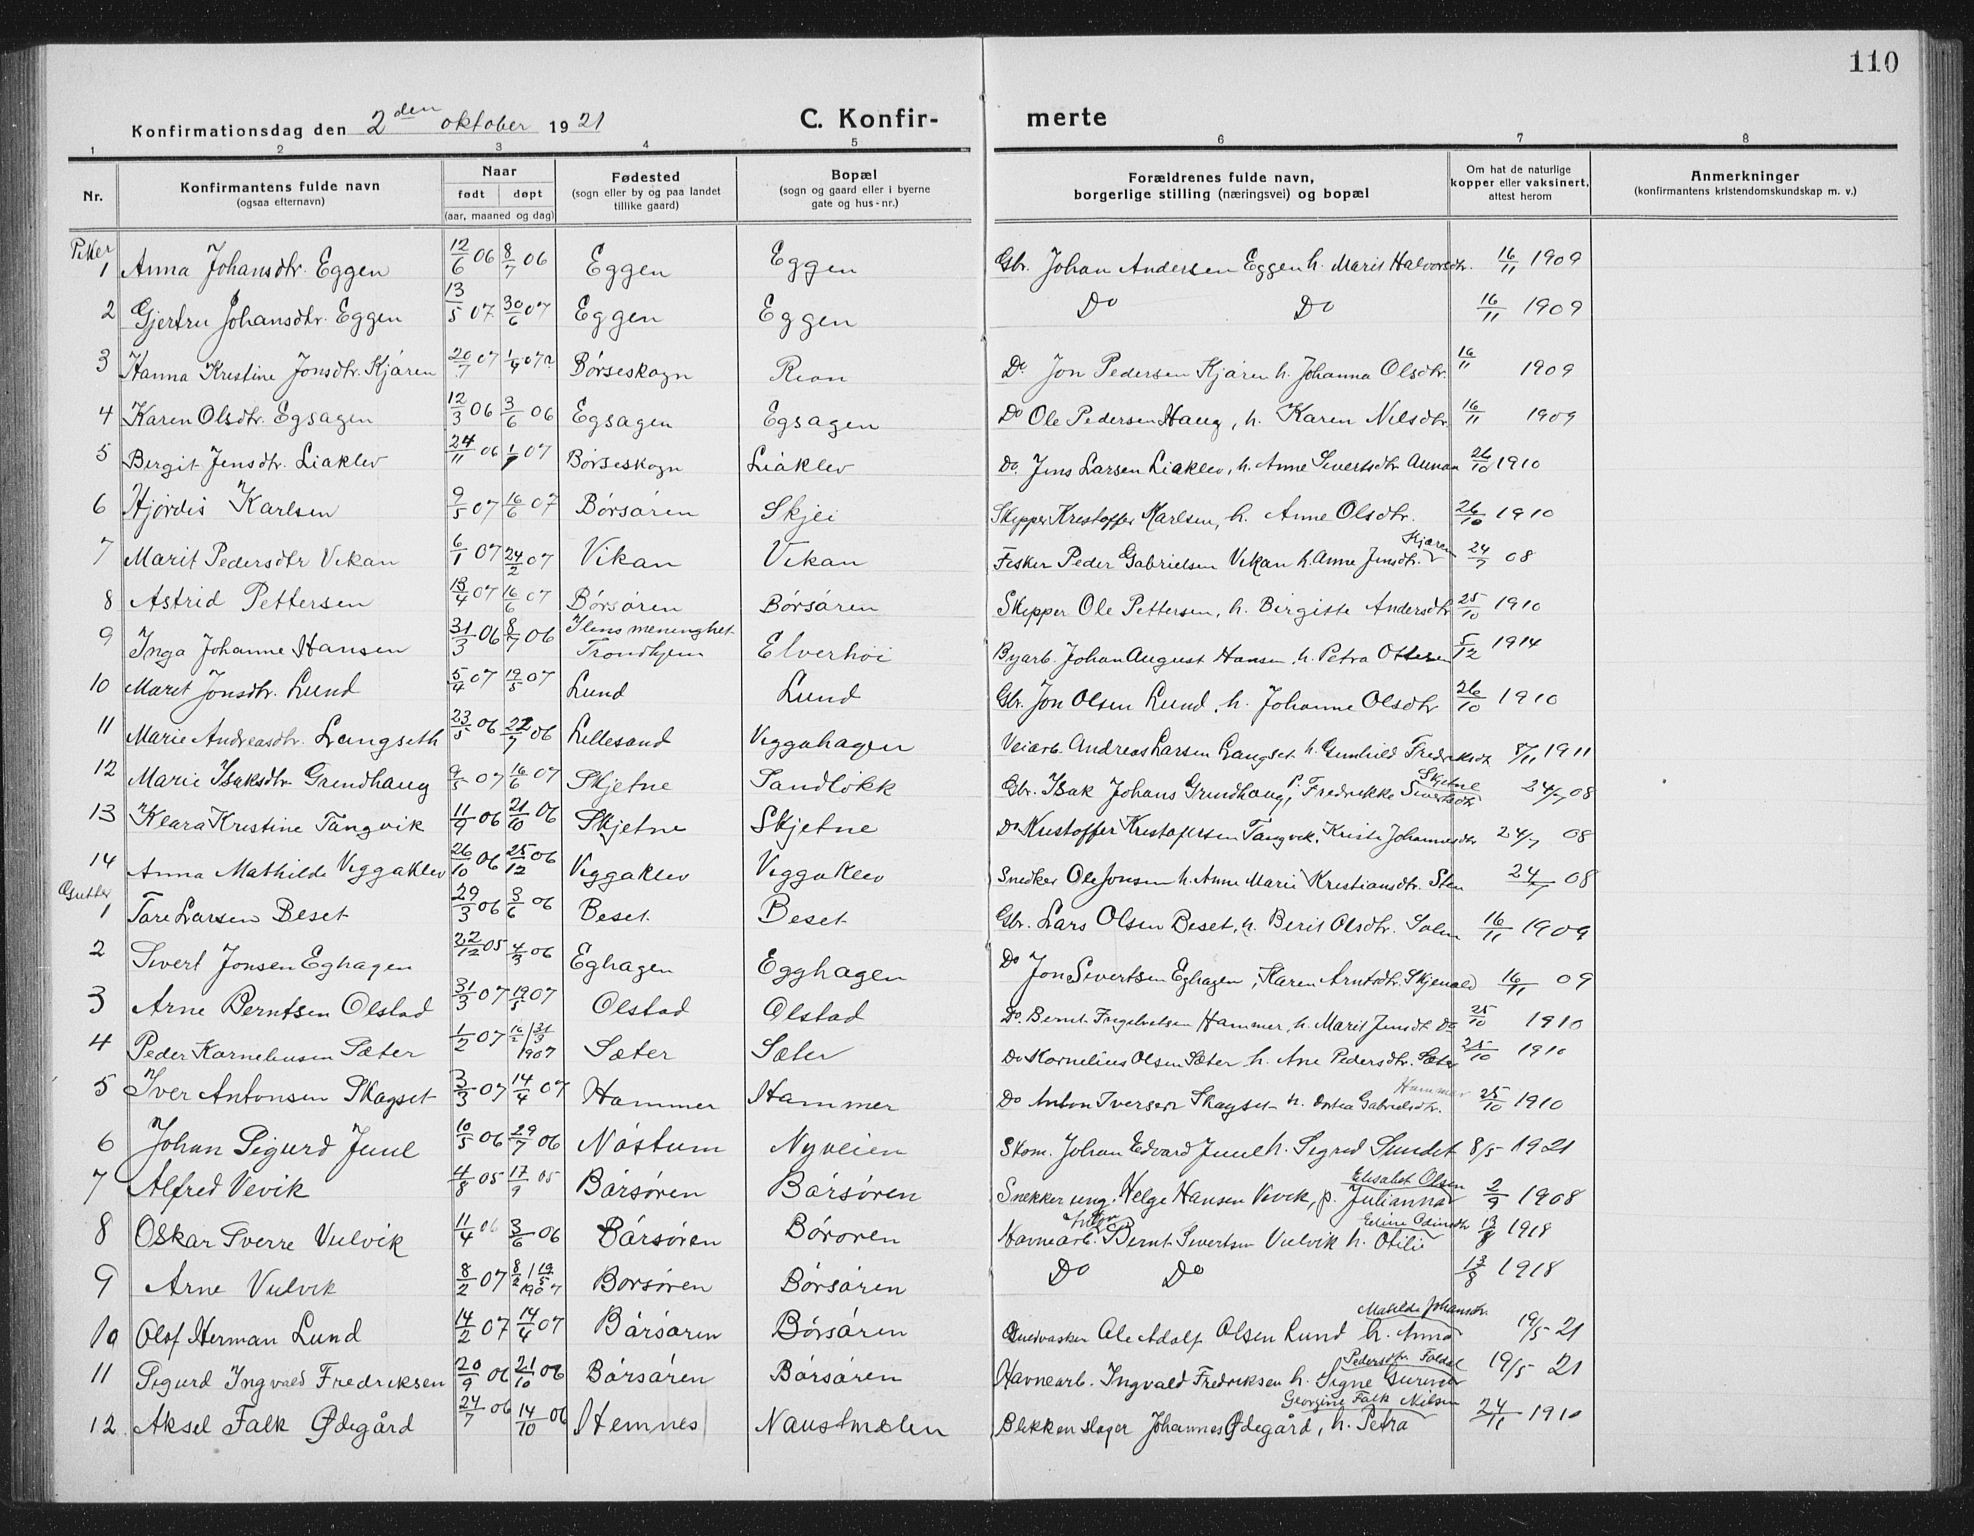 110
Konfirmationsdag den 2den oktober 1921
C. Konfirmerte
1 2 3 4 5 6 7 8
Nr.
Konfirmantens fulde navn
(ogsaa efternavn)
Naar
født døpt
(aar, maaned og dag)
Fødested
(sogn eller by og paa landet
tillike gaard)
Bopæl
(sogn og gaard eller i byerne
gate og hus-nr.)
Forældrenes fulde navn,
borgerlige stilling (næringsvei) og bopæl
Om hat de naturlige
kopper eller vaksinert,
attest herom
Anmerkninger
(konfirmantens kristendomskundskap m. v.)
Piker
1 Anna Johansdtr. Eggen 12/6 06 8/7 06 Eggen Eggen Gbr. Johan Andersen Eggen h. Marit Halvorsdtr. 16/11 1909
2 Gjertru Johansdtr. Eggen 13/5 07 30/6 07 Eggen Eggen Do Do 16/11 1909
3 Hanna Kristine Jonsdtr. Kjåren 20/7 07 Børseskogn Do Jon Pedersen Kjåren h. Johanna Olsdtr. 16/11 1909
4 Karen Olsdtr. Egsagen 12/3 06 3/6 06 Egsagen Egsagen Do Ole Pedersen Haug, h. Karen Nilsdtr. 16/11 1909
5 Bergit Jensdtr. Liaklev 24/11 06 07 Børseskogn Liaklev Do. Jens Larsen Liaklev, h. Anne Sivertsdtr. 26/10 1910
6 Hjørdis Karlsen 9/5 07 16/6 07 Børsøren Skjei Skipper Krestoffer Karlsen, h. Anne Olsdtr. 26/10 1910
7 Marit Pedersdtr Vikan 6/1 07 24/2 07 Vikan Vikan Fisker Peder Gabrielsen Vikan h. Anne Jensdtr. Kjæren 24/7 08
8 Astrid Pettersen 13/4 07 16/6 07 Børsøren Børsøren Skipper Ole Pettersen, h. Birgitte Andersdtr 25/10 1910
9 Inga Johanne Hansen 31/3 06 8/7 06 Ilens menenghet Trondhjem Elverhøi Byarb. Johan August Hansen h. Petra Ottesen 5/12 1914
10 Maret Jonsdtr. Lund 5/4 07 19/5 07 Lund Lund Gbr. Jon Olsen Lund, h. Johanne Olsdtr 26/10 1910
11 Marie Andreasdtr. Langseth 23/5 06 22/7 06 Lillesand Viggahagen Veiarb. Andreas Larsen Langset h. Gunhild Fredriksdt 8/11 1911
12 Marie Isaksdtr. Grendhaug 9/5 07 16/6 07 Skjetne Sandløkk Gbr. Isak Johans Grindhaug, Fredrikke Sivertsdtr Skjetne 24/7 08
13 Klara Kristine Tangvik 11/9 06 21/10 06 Skjetne Skjetne Do Kristoffer Kristofersen Tangvik, Kristi Johannesdtr 24/7 08
14 Anna Mathilde Viggaklev 26/10 06 25/12 06 Viggaklev Viggaklev Snedker Ole Jonsen h. Anne Marie Kristiansdtr. Sten 24/7 08
Gutter
1 Tore Larsen Beset 29/3 06 3/6 06 Beset. Beset Gbr. Lars Olsen Beset, h. Berit Olsdtr. Solem 16/11 1909
2 Sivert Jonsen Eghagen 22/12 05 4/3 06 Eghagen Egghagen Do Jon Sivertsen Eghagen, Karen Arntsdtr. Skjenald 16/11 09
3 Arne Berntsen Olstad 31/3 07 19/5 07 Olstad Olstad Do. Bernt Hammer, h. Marit Jensdt. Do 25/10 1910
4 Peder Korneliusen Sæter 1/2 07 16/2 | 31/3 1907 Sæter Sæter Do Kornelius Olsen Sæter h. Ane Pedersdtr. Sæter 25/10 1910
5 Iver Antonsen Skagset 3/3 07 14/4 07 Hammer Hammer Do Anton Iversen Skagset h. Ontea Gabrielsdtr. Hammer 25/10 1910
6 Johan Sigurd Juul 10/5 06 29/7 06 Nøstum Nyveien Skom. Johan Edvard Juul h. Sigrid Sundet 8/5 1921
7 Alfred Vevik 4/8 05 17/9 05 Børsøren Børsøren Snekker ung. Helge Hansen Vevik, p. Julianna Elisabet Olsen 2/9 1908
8 Oskar Sverre Vulvik 11/4 06 3/6 06 Børsøren Børøren Havnearb. Bernt Sivertsen Vulvik h. Otilie Eline Odinsdtr 13/8 1918
9 Arne Vulvik 8/2 07 8/2 | 19/5 1907 Borsøren Børsøren Do Do 13/8 1918
10 Olof Herman Lund 14/2 07 14/4 07 Børsøren Børsøren Guldvasker Ole Adolf Olsen Lund h. Anna Matilde Johansdtr. 19/5 21
11 Sigurd Ingvald Fredriksen 20/9 06 21/10 06 Børsøren Børsøren Havnearb. Ingvald Fredriksen h. Signe Gurine Pedersdtr. Foldal 19/5 21
12. Aksel Falk Ødegård 24/7 06 14/10 06 Hemnes Naustmælen Blikkenslager Johannes Ødegård, h. Petra Georgine Falk Nilsen 24/11 1910